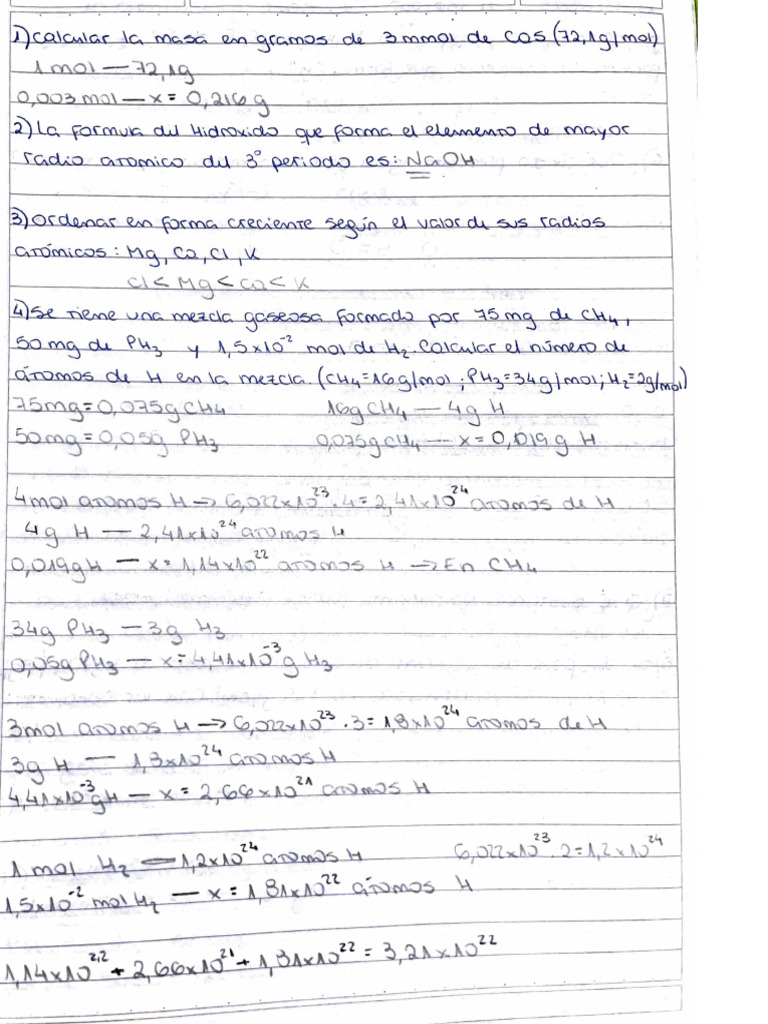 1) Calcular la masa en gramos de 3 mmol de CaS (72,1g/mol)
1 mol — 72,1g
0,003 mol — x = 0,216 g
2) La formula del Hidroxido que forma el elemento de mayor
radio atomico del 3° periodo es: NaOH
3) Ordenar en forma creciente según el valor de sus radios
atómicos: Mg, Ca, Cl, K
Cl < Mg < Ca < K
4) Se tiene una mezcla gaseosa formado por 75 mg de CH₄,
50 mg de PH₃ y 1,5x10⁻² mol de H₂. Calcular el número de
átomos de H en la mezcla. (CH₄=16g/mol; PH₃=34g/mol; H₂=2g/mol)
75mg = 0,075g CH₄ 16g CH₄ — 4g H
50mg = 0,05g PH₃ 0,075g CH₄ — x = 0,019 g H
4 mol atomos H → 6,022x10²³ . 4 = 2,41x10²⁴ atomos de H
4g H — 2,41x10²⁴ atomos H
0,019g H — x = 1,14x10²² atomos H → En CH₄
34g PH₃ — 3g H₃
0,05g PH₃ — x = 4,41x10⁻³ g H₃
3 mol atomos H → 6,022x10²³ . 3 = 1,8x10²⁴ atomos de H
3g H — 1,8x10²⁴ atomos H
4,41x10⁻³ g H — x = 2,66x10²¹ atomos H
1 mol H₂ — 1,2x10²⁴ atomos H 6,022x10²³ . 2 = 1,2x10²⁴
1,5x10⁻² mol H₂ — x = 1,81x10²² átomos H
1,14x10²² + 2,66x10²¹ + 1,81x10²² = 3,21x10²²